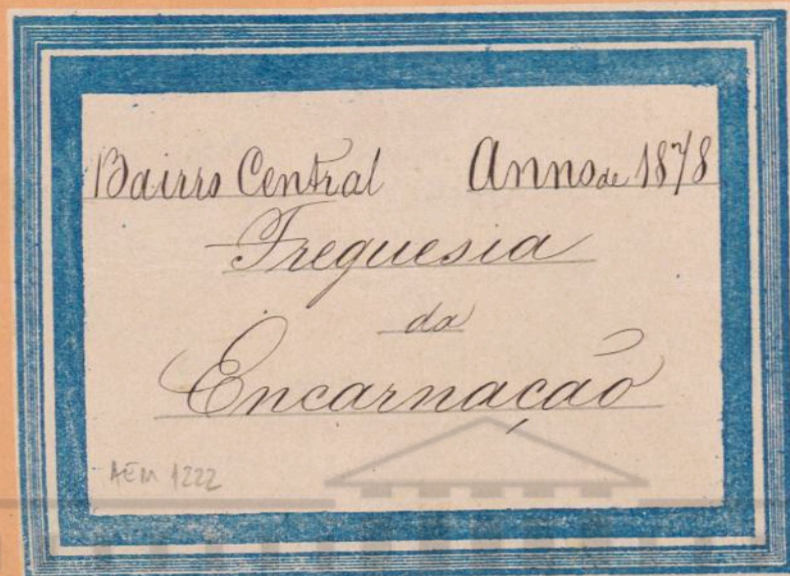 Bairro Central Anno de 1878
Freguesia
da
Encarnação
AEM 1222